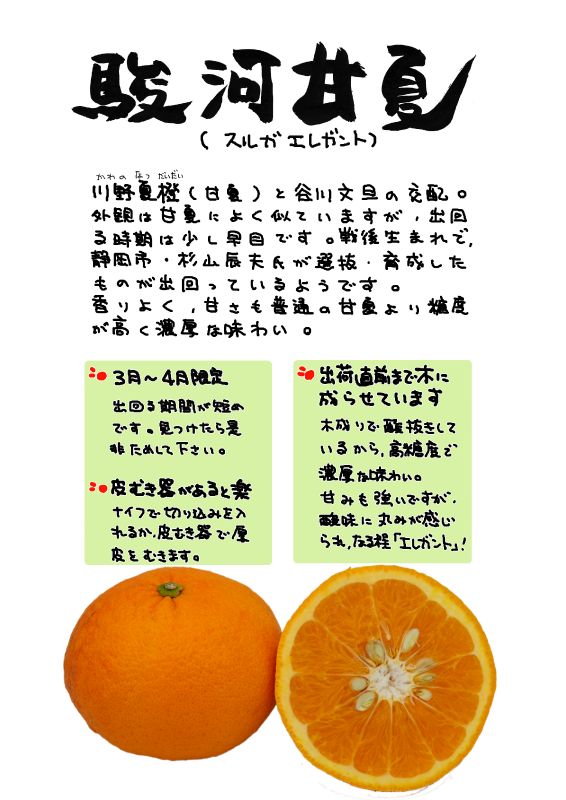 駿河甘夏
(スルガエレガント)
かわの なつ だいだい
川野夏橙(甘夏)と谷川文旦の交配。
外観は甘夏によく似ていますが、出回
る時期は少し早目です。戦後生まれで、
静岡市・杉山辰夫氏が選抜・育成した
ものが出回っているようです。
香りよく、甘さも普通の甘夏より糖度
が高く濃厚な味わい。
3月〜4月限定
出回る期間が短め
です。見つけたら是
非ためして下さい。
皮むき器があると楽
ナイフで切り込みを入
れるか、皮むき器で厚
皮をむきます。
出荷直前まで木に
成らせています
木成りで酸抜きして
いるから、高糖度で
濃厚な味わい。
甘みも強いですが、
酸味に丸みが感じ
られ、なる程「エレガント」!